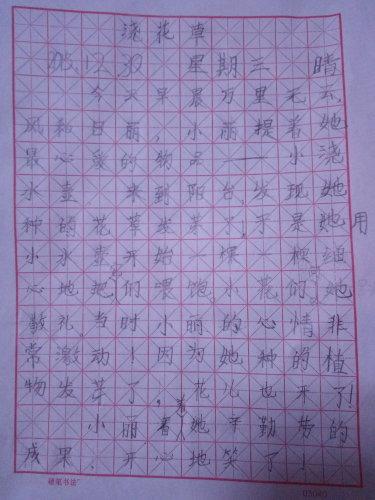 浇花草
15.12.30 星期三 晴
今天早晨万里无云,
风和日丽,小丽提着她
最心爱的物品——小浇
水壶,来到阳台,发现她
种的花草发芽了,于是她用
小水壶开始一棵一棵细
心地把它们喂饱。小花们向她
敬礼,当时小丽的心情非
常激动!因为她种的植
物发芽了,花儿也开了!
小丽看着她辛勤劳的
成果,开心地笑了!
硬笔书法